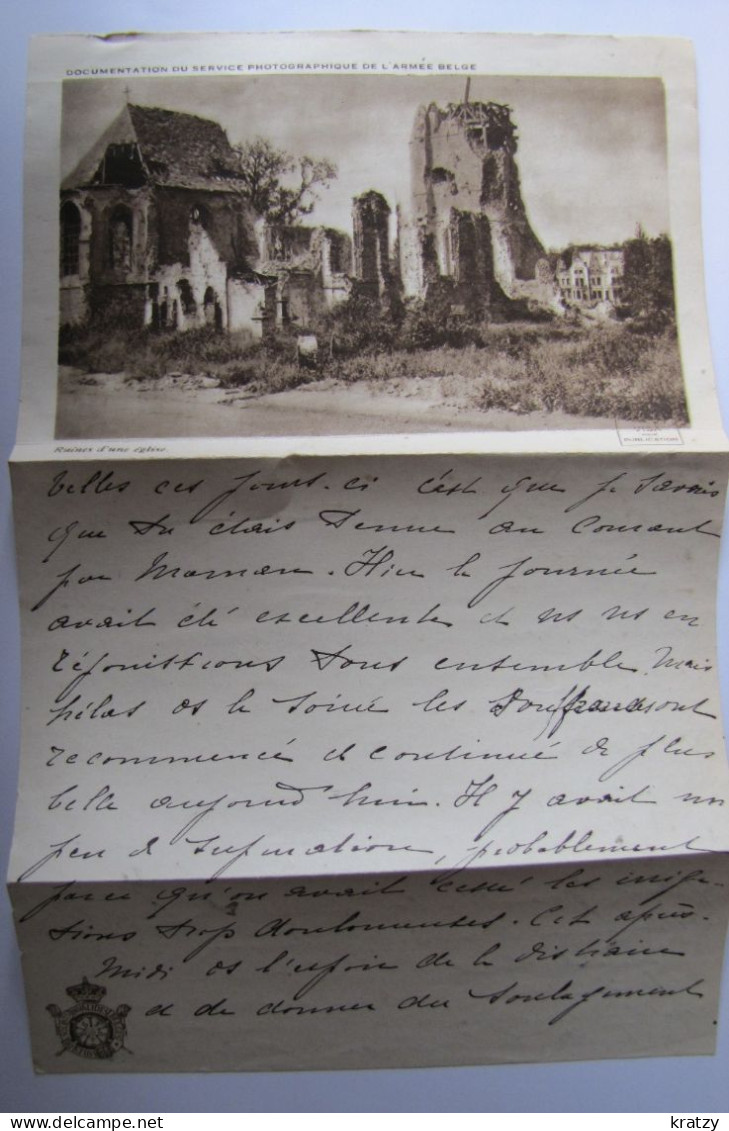 DOCUMENTATION DU SERVICE PHOTOGRAPHIQUE DE L'ARMÉE BELGE
Ruines d'une église.
belles ces jours-ci c'est que je savais
que tu étais tenue au courant
par Maman. Hier la journée
avait été excellente et ns ns en
réjouissions tous ensemble. Mais
hélas ds la soirée les souffrances ont
recommencé et continué de plus
belle aujourd'hui. Il y avait un
peu de suppuration, probablement
parce qu'on avait cessé les irriga-
tions trop douloureuses. Cet après-
Midi ds l'espoir de le distraire
et de donner du soulagement
kratzy